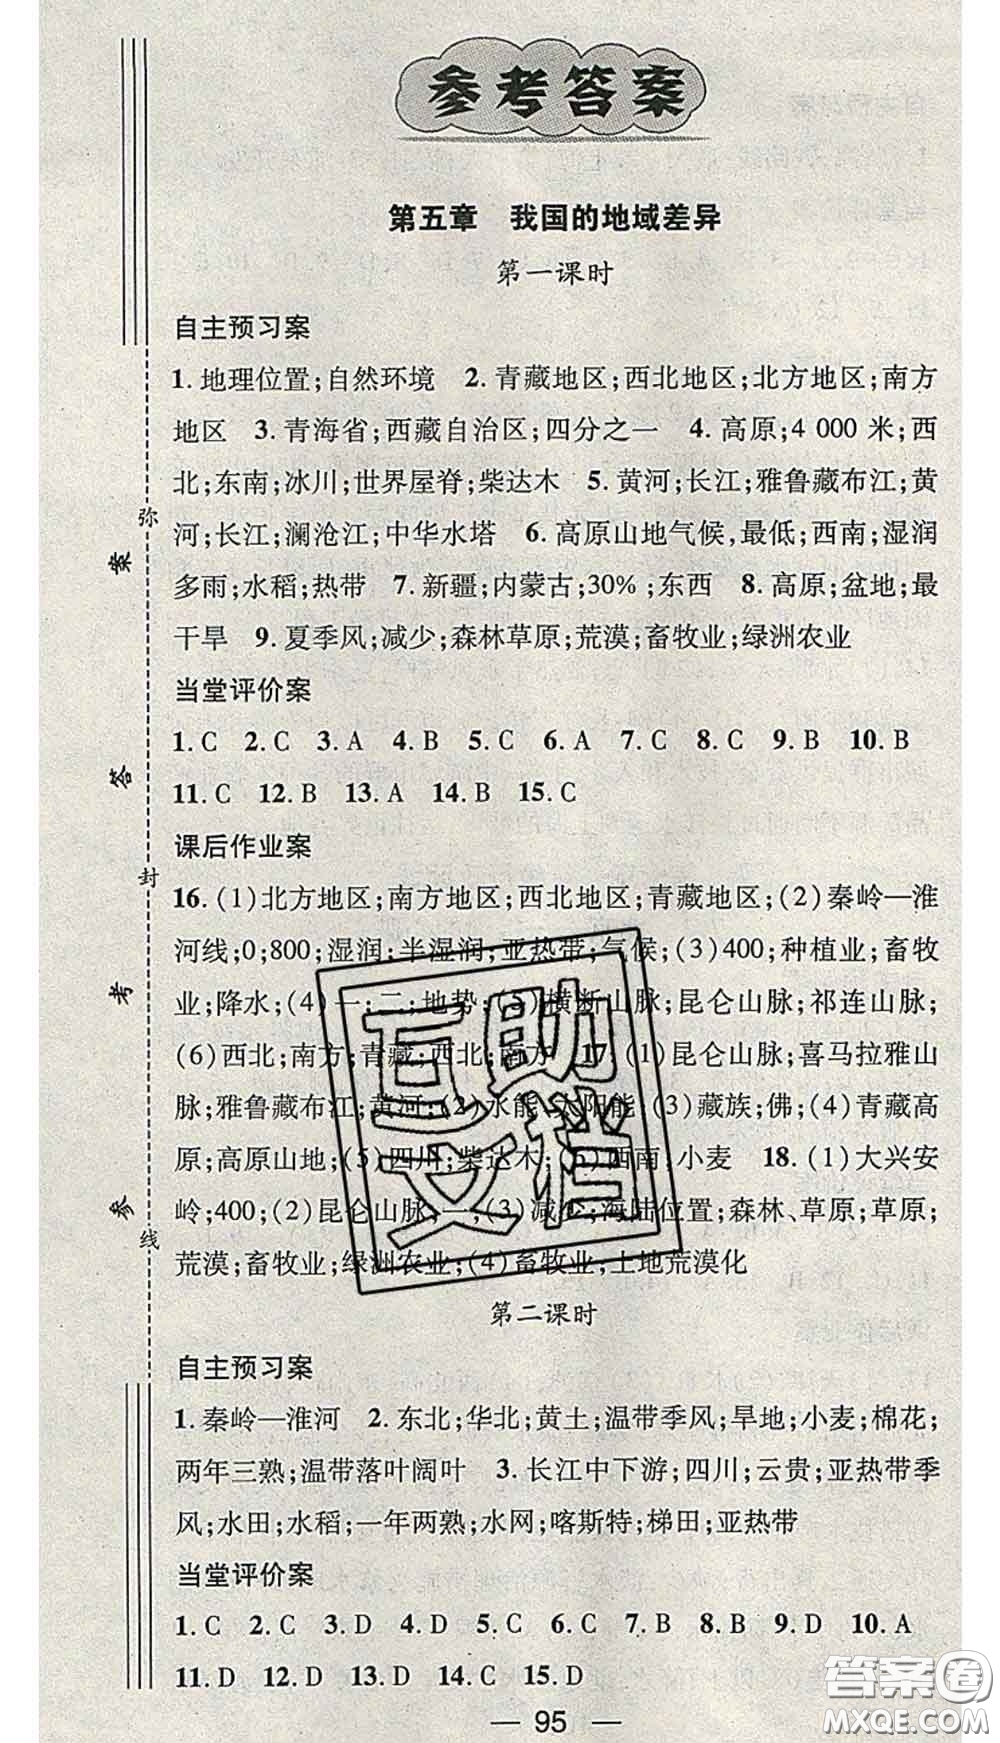 参考答案
第五章　我国的地域差异
第一课时
自主预习案
1. 地理位置;自然环境　2. 青藏地区;西北地区;北方地区;南方
地区　3. 青海省;西藏自治区;四分之一　4. 高原;4 000 米;西
北;东南;冰川;世界屋脊;柴达木　5. 黄河;长江;雅鲁藏布江;黄
河;长江;澜沧江;中华水塔　6. 高原山地气候,最低;西南;湿润
多雨;水稻;热带　7. 新疆;内蒙古;30%;东西　8. 高原;盆地;最
干旱　9. 夏季风;减少;森林草原;荒漠;畜牧业;绿洲农业
当堂评价案
1. C　2. C　3. A　4. B　5. C　6. A　7. C　8. C　9. B　10. B
11. C　12. B　13. A　14. B　15. C
课后作业案
16. (1)北方地区;南方地区;西北地区;青藏地区;(2)秦岭—淮
河线;0;800;湿润;半湿润;亚热带;气候;(3)400;种植业;畜牧
业;降水;(4)一;二;地势;(5)横断山脉;昆仑山脉;祁连山脉;
(6)西北;南方;青藏;西北;南方　17. (1)昆仑山脉;喜马拉雅山
脉;雅鲁藏布江;黄河;(2)水能;太阳能;(3)藏族;佛;(4)青藏高
原;高原山地;(5)四川;柴达木;(6)西南;小麦　18. (1)大兴安
岭;400;(2)昆仑山脉;一;(3)减少;海陆位置;森林、草原;草原;
荒漠;畜牧业;绿洲农业;(4)畜牧业;土地荒漠化
第二课时
自主预习案
1. 秦岭—淮河　2. 东北;华北;黄土;温带季风;旱地;小麦;棉花;
两年三熟;温带落叶阔叶　3. 长江中下游;四川;云贵;亚热带季
风;水田;水稻;一年两熟;水网;喀斯特;梯田;亚热带
当堂评价案
1. C　2. C　3. D　4. D　5. C　6. C　7. B　8. B　9. D　10. A
11. D　12. D　13. D　14. C　15. D
— 95 —
弥
封
线
参考答案
互助
文档
答案圈
MXQE.COM